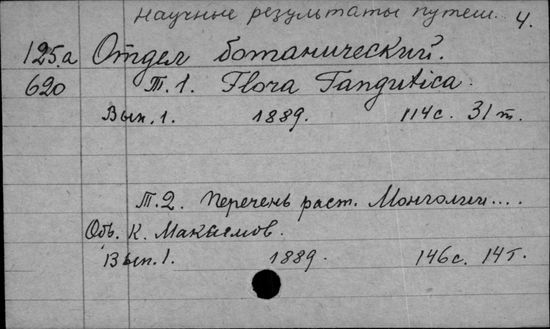 Научные результаты путеш. 4.
125.а Отдел ботанический.
620 Т.1. Flora Tangutica.
Вып.1. 1889. 114с. 31т.
Т.2. Перечень раст. Монголии....
Объ. К. Максимов.
Вып.1. 1889. 146с. 14т.